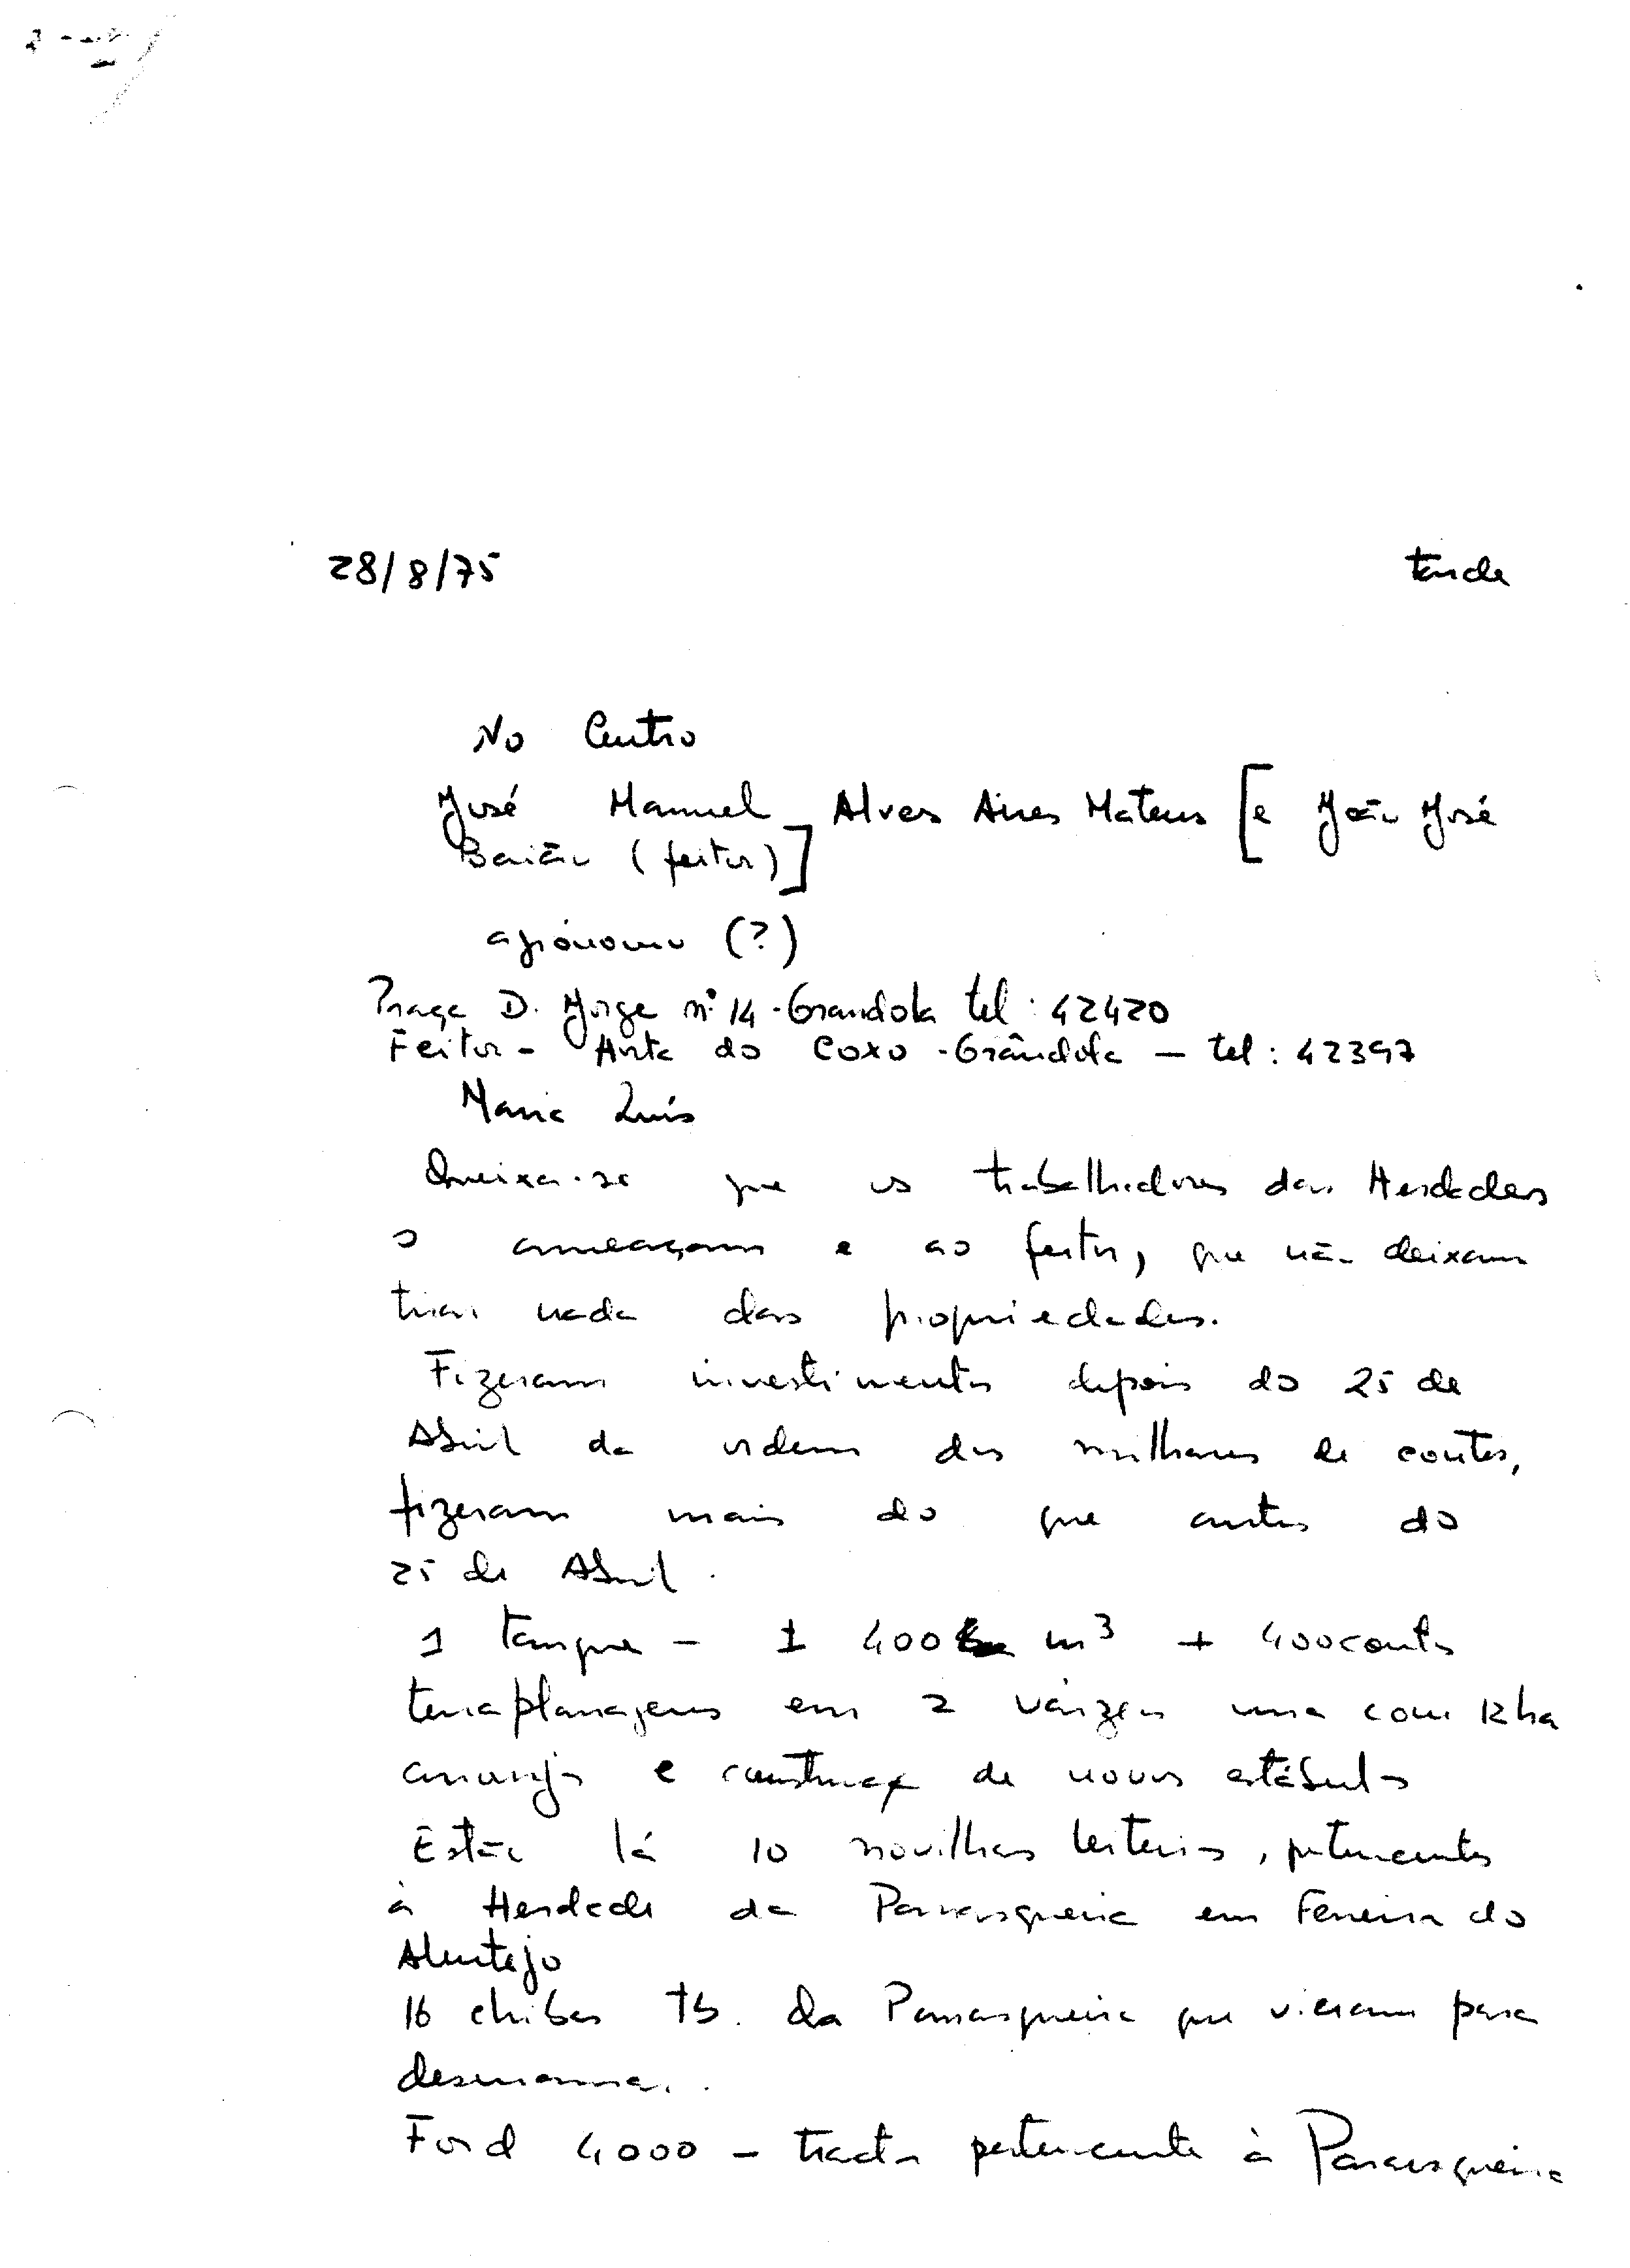 28/8/75 tarde
No Centro
José Manuel Alves Aires Mateus [e João José
Baião (feitor)]
agrónomo (?)
Praça D. Jorge nº 14 - Grandola tel: 42420
Feitor - Horta do Coxo - Grândola - tel: 42397
Maria Luís
Queixa-se que os trabalhadores das Herdades
o ameaçam e ao feitor, que não deixam
tirar nada das propriedades.
Fizeram investimentos depois do 25 de
Abril da ordem dos milhares de contos,
fizeram mais do que antes do
25 de Abril.
1 tanque - ± 400 m³ + 400 contos
terraplanagens em 2 várzeas uma com 12ha
arranjo e construção de novos estábulos
Estão lá 10 novilhas leiteiras, pertencentes
à Herdade da Parrasqueira em Ferreira do
Alentejo
16 chibas tb. da Parrasqueira que vieram para
desmamar.
Ford 4000 - tractor pertencente à Parrasqueira